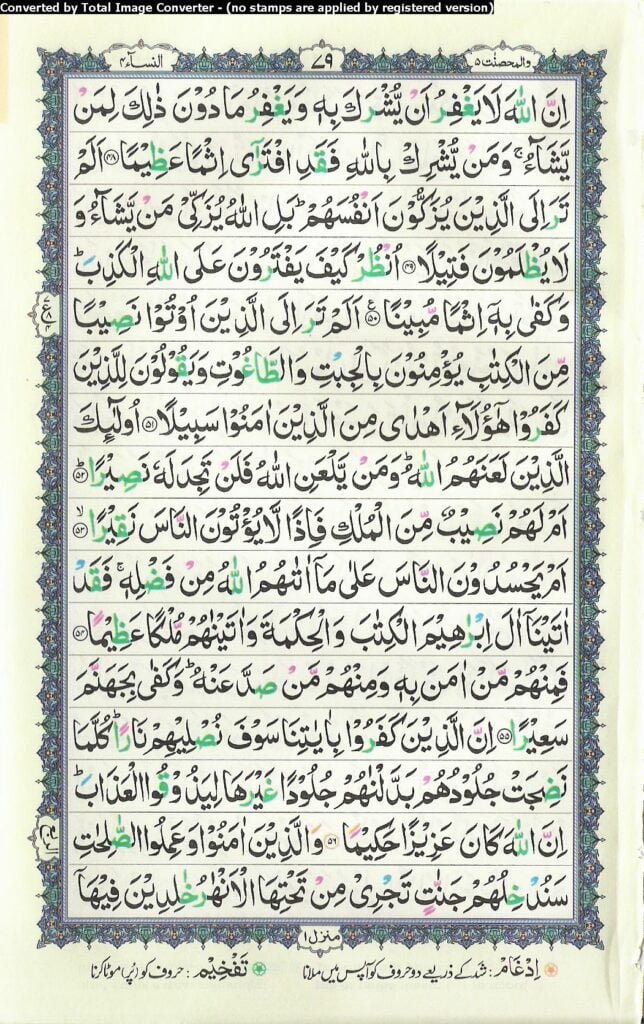 Converted by Total Image Converter - (no stamps are applied by registered version)
والمحصنت ۵
۷۹
النسآء ۴
اِنَّ اللّٰهَ لَا يَغْفِرُ اَنْ يُّشْرَكَ بِهٖ وَيَغْفِرُ مَا دُوْنَ ذٰلِكَ لِمَنْ
يَّشَآءُ ۚ وَمَنْ يُّشْرِكْ بِاللّٰهِ فَقَدِ افْتَرٰٓى اِثْمًا عَظِيْمًا ﴿۴۸﴾ اَلَمْ
تَرَ اِلَى الَّذِيْنَ يُزَكُّوْنَ اَنْفُسَهُمْ ؕ بَلِ اللّٰهُ يُزَكِّىْ مَنْ يَّشَآءُ وَ
لَا يُظْلَمُوْنَ فَتِيْلًا ﴿۴۹﴾ اُنْظُرْ كَيْفَ يَفْتَرُوْنَ عَلَى اللّٰهِ الْكَذِبَ ؕ
وَكَفٰى بِهٖۤ اِثْمًا مُّبِيْنًا ﴿۵۰﴾ ع اَلَمْ تَرَ اِلَى الَّذِيْنَ اُوْتُوْا نَصِيْبًا
مِّنَ الْكِتٰبِ يُؤْمِنُوْنَ بِالْجِبْتِ وَالطَّاغُوْتِ وَيَقُوْلُوْنَ لِلَّذِيْنَ
كَفَرُوْا هٰٓؤُلَآءِ اَهْدٰى مِنَ الَّذِيْنَ اٰمَنُوْا سَبِيْلًا ﴿۵۱﴾ اُولٰٓئِكَ
الَّذِيْنَ لَعَنَهُمُ اللّٰهُ ؕ وَمَنْ يَّلْعَنِ اللّٰهُ فَلَنْ تَجِدَ لَهٗ نَصِيْرًا ﴿۵۲﴾ؕ
اَمْ لَهُمْ نَصِيْبٌ مِّنَ الْمُلْكِ فَاِذًا لَّا يُؤْتُوْنَ النَّاسَ نَقِيْرًا ﴿۵۳﴾ۙ
اَمْ يَحْسُدُوْنَ النَّاسَ عَلٰى مَاۤ اٰتٰىهُمُ اللّٰهُ مِنْ فَضْلِهٖ ۚ فَقَدْ
اٰتَيْنَاۤ اٰلَ اِبْرٰهِيْمَ الْكِتٰبَ وَالْحِكْمَةَ وَاٰتَيْنٰهُمْ مُّلْكًا عَظِيْمًا ﴿۵۴﴾
فَمِنْهُمْ مَّنْ اٰمَنَ بِهٖ وَمِنْهُمْ مَّنْ صَدَّ عَنْهُ ؕ وَكَفٰى بِجَهَنَّمَ
سَعِيْرًا ﴿۵۵﴾ اِنَّ الَّذِيْنَ كَفَرُوْا بِاٰيٰتِنَا سَوْفَ نُصْلِيْهِمْ نَارًا ؕ كُلَّمَا
نَضِجَتْ جُلُوْدُهُمْ بَدَّلْنٰهُمْ جُلُوْدًا غَيْرَهَا لِيَذُوْقُوا الْعَذَابَ ؕ
اِنَّ اللّٰهَ كَانَ عَزِيْزًا حَكِيْمًا ﴿۵۶﴾ وَالَّذِيْنَ اٰمَنُوْا وَعَمِلُوا الصّٰلِحٰتِ
سَنُدْخِلُهُمْ جَنّٰتٍ تَجْرِىْ مِنْ تَحْتِهَا الْاَنْهٰرُ خٰلِدِيْنَ فِيْهَاۤ
منزل ۱
اِدْغَام : شد کے ذریعے دو حروف کو آپس میں ملانا
تَفْخِيْم : حروف کو (پُر) موٹا کرنا